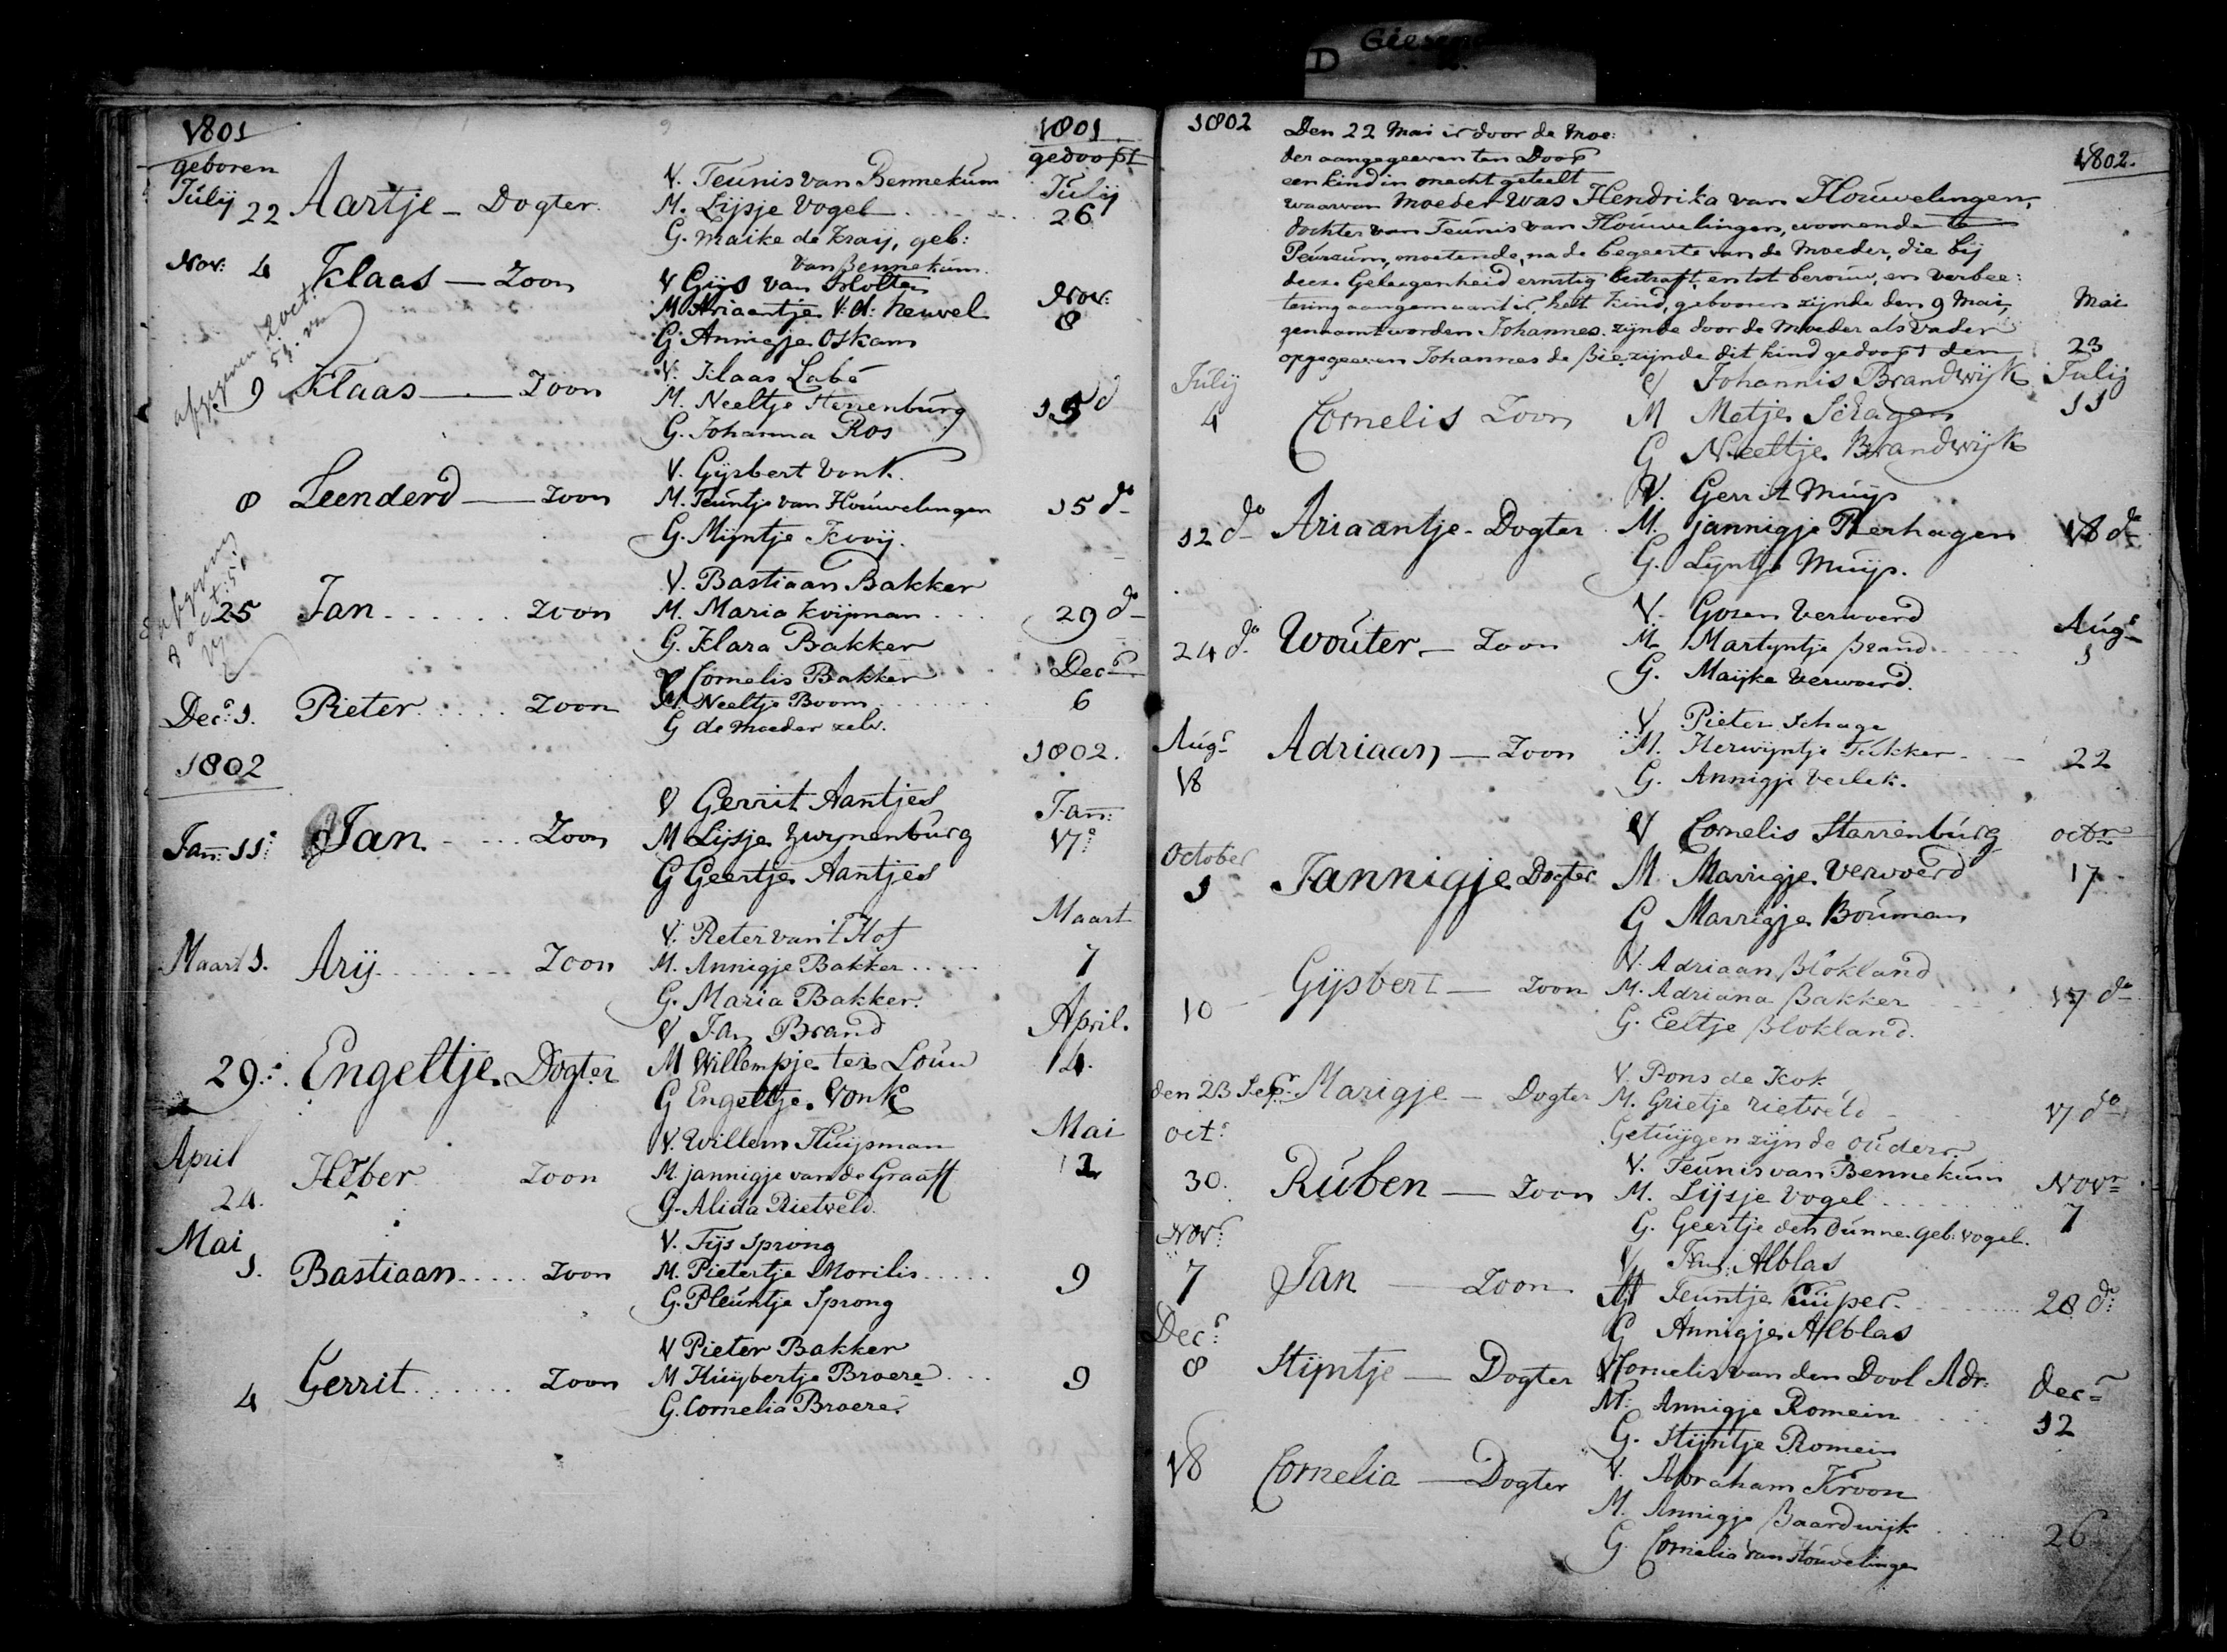 D
1801
1801
geboren
gedoopt
July 22 Aartje - Dogter.
V. Teunis van Bennekum
M. Lijsje Vogel
G. Maike de Kraij, geb:
van Bennekum.
July
26
Nov: 4 Klaas - Zoon
V Gijs van Holten
M Ariaantje V: d: Heuvel
G Annigje Oskam
Nov:
8
9 Klaas - Zoon
V. Klaas Labé
M. Neeltje Herrenburg
G. Johanna Ros
15 d
8 Leenderd - Zoon
V. Gijsbert Vonk.
M. Teuntje van Houwelingen
G. Mijntje Kooij.
15 do
25 Jan ...... Zoon
V. Bastiaan Bakker
M. Maria Kooijman ...
G. Klara Bakker
29 do
Decr: 1. Pieter ..... Zoon
V Cornelis Bakker
M Neeltje Boom
G de Moeder zelv.
Decr
6
1802
1802.
Jan: 11: Jan - ... Zoon
V Gerrit Aantjes
M Lijsje Zwijnenburg
G Geertje Aantjes
Jan:
17:
Maart 1. Arij ........ Zoon
V. Pieter van 't Hof
M. Annigje Bakker .....
G. Maria Bakker.
Maart
7
29: Engeltje Dogter
V Jan Brand
M Willempje ter Louw
G Engeltje Vonk
April.
14.
April
24. Heber Zoon
V. Willem Huijsman
M. jannigje van de Graaff
G. Alida Rietveld.
Mai
Mai
1. Bastiaan ..... Zoon
V. Tijs Sprong
M. Pietertje Morilis .....
G. Pleuntje Sprong
9
4 Gerrit ...... Zoon
V Pieter Bakker
M Huijbertje Broere ...
G. Cornelia Broere.
9
1802
1802.
Den 22 Mai is door de Moe:
der aangegeeven ten Doop
een kind in onecht geteelt
waarvan Moeder was Hendrika van Houwelingen,
dochter van Teunis van Houwelingen, woonende te
Peursum, moetende, na de begeerte van de Moeder, die bij
deeze Gelegenheid ernstig bestraft, en tot berouw, en verbee:
tering aangemaant is, hett Kind, gebooren zijnde den 9 Mai,
genaamt worden Johannes. zijnde door de Moeder als Vader
opgegeeven Johannes de Bie zijnde dit kind gedoopt den
Mai
23
July
4 Cornelis Zoon
V Johannis Brandwijk
M Metje Schagen
G Neeltje Brandwijk
July
11
12 do Ariaantje - Dogter
V. Gerrit Muijs
M. jannigje Terhagen
G. Lijntje Muijs.
18 do
24 do. Wouter - Zoon
V. Gosen Verwoerd
M. Martijntje Brand
G. Maijke Verwoerd.
Augs
1
Augs
18
Adriaan - Zoon
V Pieter Schage
M. Herwijntje Tukker
G. Annigje Verlek.
22
October
1 Jannigje Dogter
V Cornelis Starrenburg
M Marrigje Verwoerd
G Marrigje Bouman
octr
17
10 Gijsbert - Zoon
V. Adriaan Blokland
M. Adriana Bakker
G. Eeltje Blokland.
17 do
den 23 Sepr. Marigje - Dogter
V. Pons de Kok
M. Grietje rietveld
Getuijgen zijn de ouders.
17 do
octr
30. Ruben - Zoon
V. Teunis van Bennekum
M. Lijsje Vogel
G. Geertje den Dunne geb: vogel.
Novr
7
Novr:
7 Jan - Zoon
V Jan Alblas
M Teuntje Cuiper
G Annigje Alblas
28 do:
Decr:
8 Stijntje - Dogter
V Cornelis van den Dool Adr:
M. Annigje Romein
G. Stijntje Romein
decr
12
18 Cornelia - Dogter
V. Abraham Kroon
M. Annigje Baardwijk
G. Cornelia van Houwelingen
26